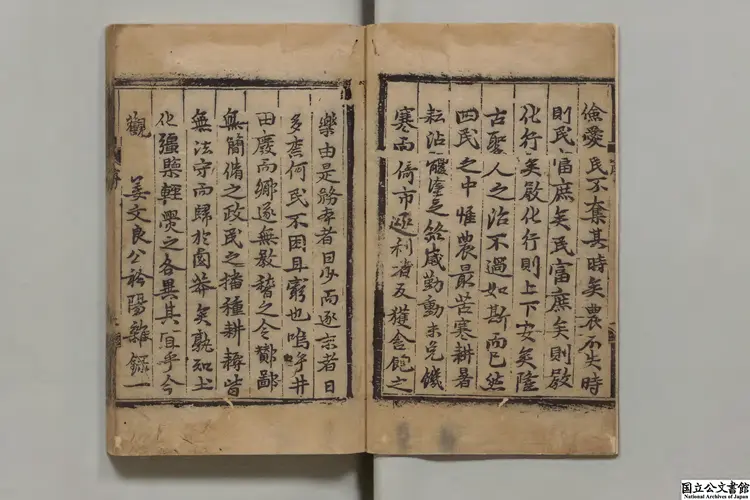 儉愛民不奪其時矣農不失時
則民富庶矣民富庶矣則敎
化行矣敎化行則上下安矣隆
古聖人之治不過如斯而已然
四民之中惟農最苦寒耕暑
耘沾體塗足終歲勤動未免饑
寒而倚市逐利者反獲含飽之
樂由是務本者日少而逐末者日
多奈何民不困且窮也嗚乎井
田廢而鄕遂無敎稽之令酇鄙
無簡脩之政民之播種耕耨皆
無法守而歸於鹵莽矣孰知土
化彊㯺輕爂之各異其宜乎今
觀 姜文良公衿陽雜錄一
国立公文書館
National Archives of Japan